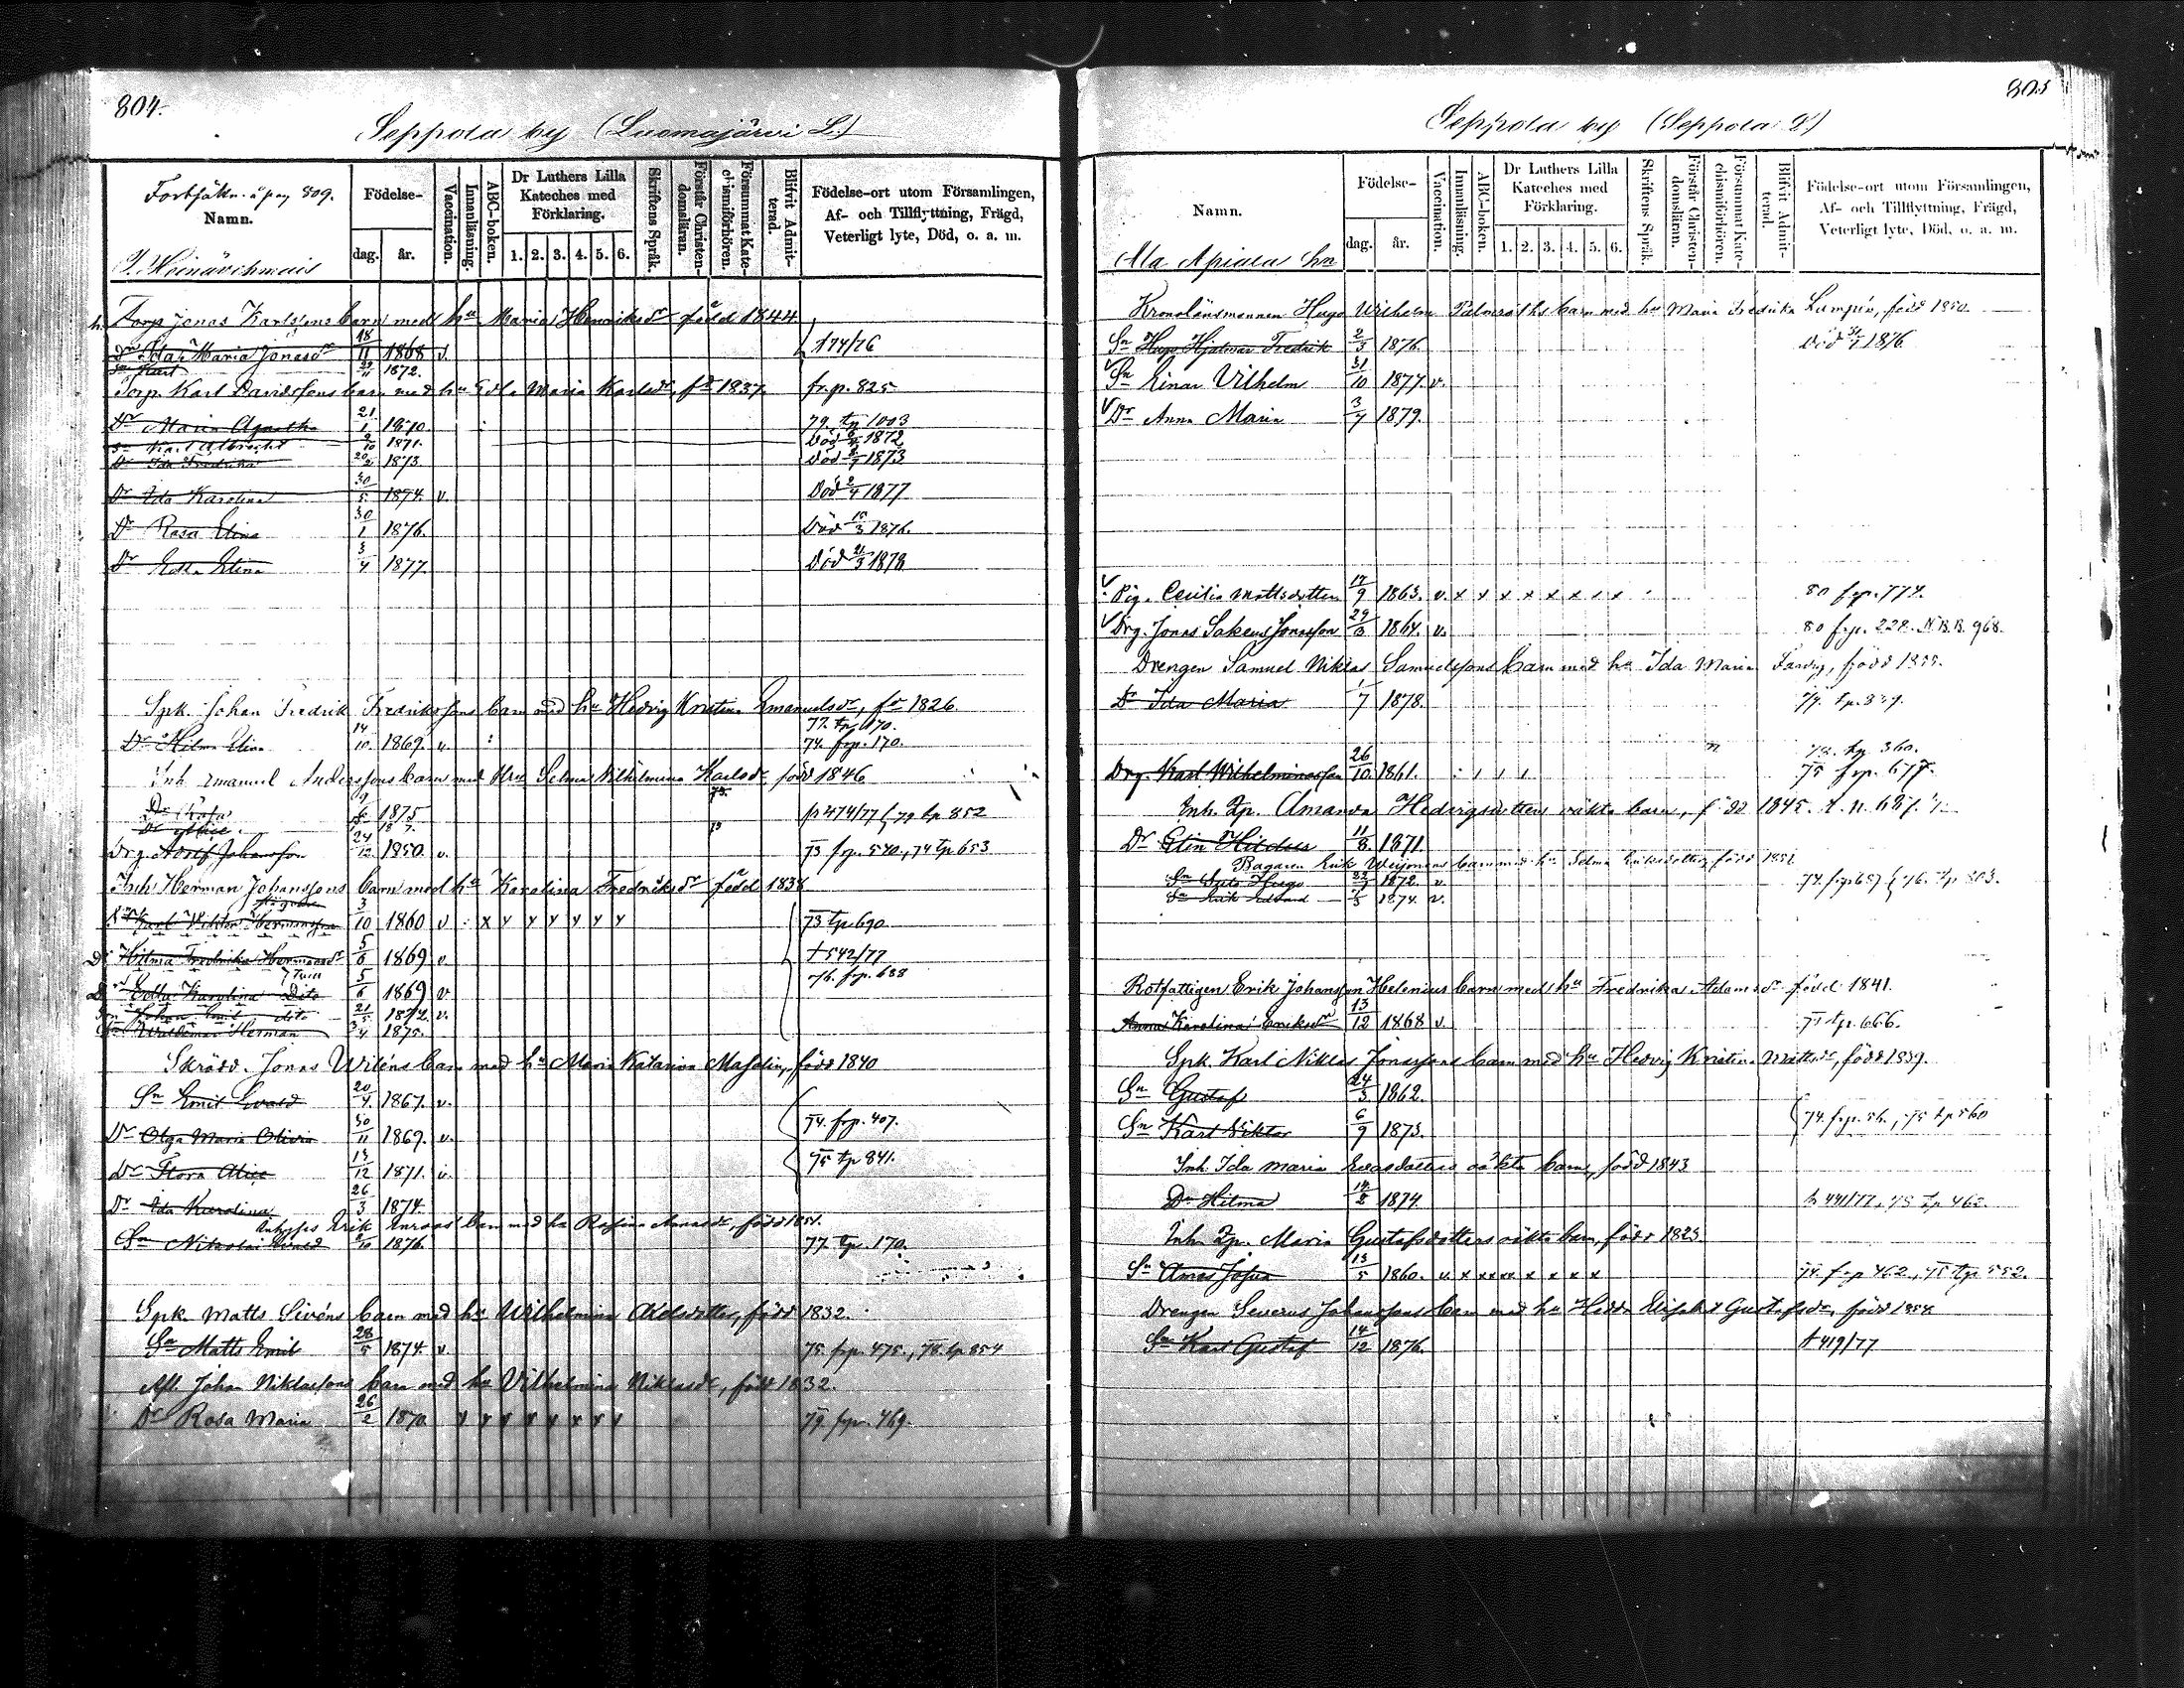 804.
Seppola by (Luomajärvi L.)
Fortsättn. å pag 809.
Namn.
Födelse-
dag.
år.
Vaccination.
Innanläsning.
ABC-boken.
Dr Luthers Lilla Kateches med Förklaring.
1. 2. 3. 4. 5. 6.
Skriftens Språk.
Förstår Christen-domsläran.
Försummat Kate-chismiförhören.
Blifvit Admit-terad.
Födelse-ort utom Församlingen, Af- och Tillflyttning, Frägd, Veterligt lyte, Död, o. a. m.
Torp Jonas Karlssons barn med hu Maria Henriksdr född 1844
Dr Ida Maria Jonasdr 18/11 1868 v. 174/76
Sn Karl 1872.
Torp. Karl Davidssons barn med hu Edla Maria Karlsdr, fd 1837. fr.p. 825
Dr Maria Agatha 21/1 1870 79. tp 1003
Sn Karl Albrecht 9/10 1871. Död 1872
Dr Ida Fredrika 20/2 1873. Död 1873
Dr Ida Karolina 30/5 1874. v. Död 2/4 1877
Dr Rosa Elina 30/1 1876. Död 15/3 1876.
Dr Edla Elina 3/4 1877. Död 21/3 1878
Spk. Johan Fredrik Fredrikssons barn med hu Hedvig Kristina Emanuelsdr, fd 1826.
77. tp. 170.
Dr Hilma Elina 14/10 1869. v. 74. frp. 170.
Inh. Emanuel Anderssons barn med hu Selma Vilhelmina Karlsdr född 1846
Dr Rosa 1875 p 474/77 79 tp 852
Dr Alice.
Drg. Adolf Johansson 24/12 1850 v. 73 frp. 540., 74 tp 653
Inh. Herman Johanssons barn med hu Karolina Fredriksdr född 1838
Karl Viktor Hermansson 3/10 1860 v x y y y y y y 73 tp. 690
Dr Hilma Fredrika Hermansdr 5/6 1869 v † 542/77
76. frp. 688
Dr Edla Karolina Dito 5/6 1869 v
Sn Johan Emil dito 21/5 1872. v.
Sn Waldemar Herman 3/4 1875.
Skrädd. Jonas Wiléns barn med hu Maria Katarina Masalin, född 1840
Sn Emil Evald 20/4. 1867. v.
74. frp. 407.
Dr Olga Maria Olivia 30/11 1869. v.
75 tp 841.
Dr Flora Alice 13/12 1871. v.
Dr Ida Karolina 26/3 1874.
Inhyses Erik barn med hu Rosina, född 1851.
Sn Nikolai 8/10 1876. 77. tp. 170.
Spk. Matts Siréns barn med hu Wilhelmina Axelsdotter, född 1832.
Sn Matts Emil 28/5 1874. v. 75. frp. 475., 78. tp 854
Afl. Johan Niklassons barn med hu Vilhelmina Niklasdr, född 1832.
Dr Rosa Maria 26/2 1870. y y y y y y y y 79. frp. 769.
805
Seppola by (Seppola L.)
Namn.
Födelse-
dag.
år.
Vaccination.
Innanläsning.
ABC-boken.
Dr Luthers Lilla Kateches med Förklaring.
1. 2. 3. 4. 5. 6.
Skriftens Språk.
Förstår Christen-domsläran.
Försummat Kate-chismiförhören.
Blifvit Admit-terad.
Födelse-ort utom Församlingen, Af- och Tillflyttning, Frägd, Veterligt lyte, Död, o. a. m.
Ala Apiala hn
Kronolänsmannen Hugo Wilhelm Palmroths barn med hu Maria Fredrika Lumpén, född 1850.
Sn Hugo Hjalmar Fredrik 2/3 1876. Död 1876
Sn Einar Vilhelm 31/10 1877. v.
Dr Anna Maria 3/7 1879.
Pig. Cecilia Mattsdotter 17/9 1863. v. x x x x x x x x 80 frp. 774.
Drg. Jonas Sakeus Jonasson 29/3 1864. v. 80 frp. 228. N.B.B. 968.
Drengen Samuel Niklas Samuelssons barn med hu Ida Maria, född 1855.
Dr Ida Maria 1/7 1878.
72. tp. 360.
Drg. Karl Wilhelminasson 26/10 1861. 75 frp. 677.
Inh. Qp. Amanda Hedvigsdotters oäkta barn, född 1845.
Dr Elin Hildur 11/8. 1871
Bagaren Erik barn med hu Selma Eriksdotter född 1852
Sn Hugo 1872. v. 74. frp 657 76. tp 803.
Sn Erik Edvard 1874. v.
Rotfattigen Erik Johansson Helenius barn med hu Fredrika Adamsdr född 1841.
Anna Karolina Eriksdr 13/12 1868 v. 71 tp. 666.
Spk. Karl Niklas Jonassons barn med hu Hedvig Kristina Mattsdr, född 1839.
Sn Gustaf 24/3 1862.
Sn Karl Viktor 6/9 1873. 74. frp. 56., 75 tp 560
Inh. Ida Maria Evasdotters oäkta barn, född 1843
Dr Hilma 14/2 1874. p 491/77., 78 tp 462.
Inh. Qp. Maria Gustafsdotters oäkta barn, född 1823
Sn Amos Josua 13/5 1860. v x x x x x x x x 74. frp 462., 75 tp 552.
Drengen Severus Johanssons barn med hu Hedda Elisabet Gustafsdr, född 1858
Sn Karl Gustaf 14/12 1876. † 419/77